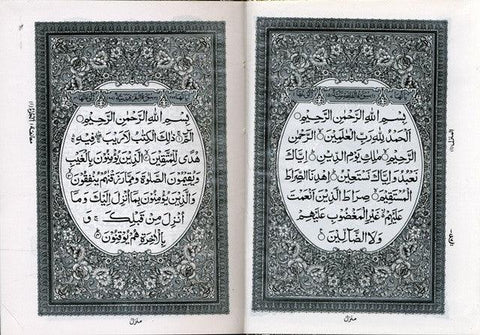 بِسْمِ اللهِ الرَّحْمٰنِ الرَّحِيْمِ
اَلْحَمْدُ لِلّٰهِ رَبِّ الْعٰلَمِيْنَ الرَّحْمٰنِ
الرَّحِيْمِ مٰلِكِ يَوْمِ الدِّيْنِ اِيَّاكَ
نَعْبُدُ وَاِيَّاكَ نَسْتَعِيْنُ اِهْدِنَا الصِّرَاطَ
الْمُسْتَقِيْمَ صِرَاطَ الَّذِيْنَ اَنْعَمْتَ
عَلَيْهِمْ غَيْرِ الْمَغْضُوْبِ عَلَيْهِمْ
وَلَا الضَّآلِّيْنَ
منزل
بِسْمِ اللهِ الرَّحْمٰنِ الرَّحِيْمِ
الٓمّٓ ذٰلِكَ الْكِتٰبُ لَا رَيْبَ فِيْهِ
هُدًى لِّلْمُتَّقِيْنَ الَّذِيْنَ يُؤْمِنُوْنَ بِالْغَيْبِ
وَيُقِيْمُوْنَ الصَّلٰوةَ وَمِمَّا رَزَقْنٰهُمْ يُنْفِقُوْنَ
وَالَّذِيْنَ يُؤْمِنُوْنَ بِمَآ اُنْزِلَ اِلَيْكَ وَمَآ
اُنْزِلَ مِنْ قَبْلِكَ وَ
بِالْاٰخِرَةِ هُمْ يُوْقِنُوْنَ
منزل